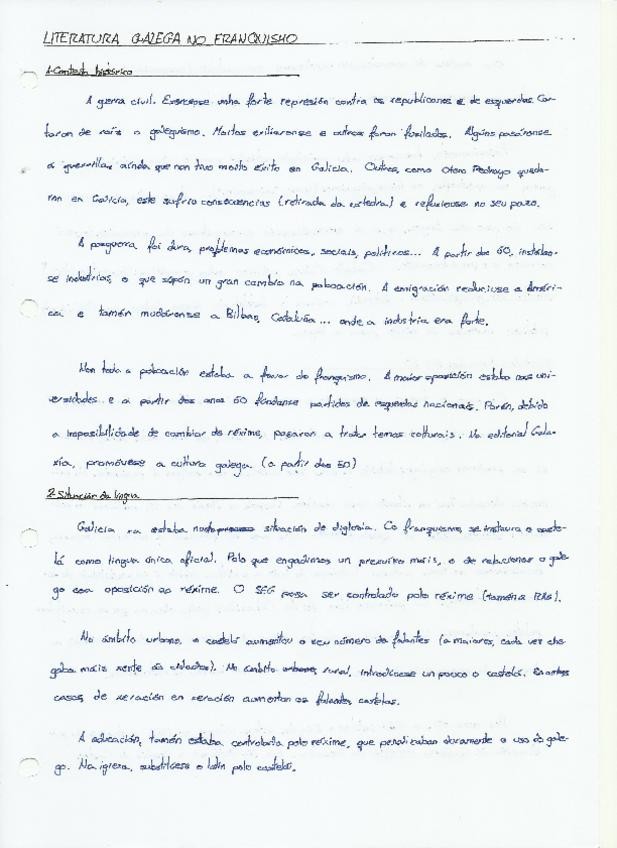 LITERATURA GALEGA NO FRANQUISMO
1. Contexto histórico
A gerra civil. Exerceuse unha forte represión contra os republicanos e de esquerdas. Cor-
taron de raiz o galeguismo. Moitos exiliaronse e outros foron fusilados. Algúns pasáronse
á guerrilla, aínda que non tivo moito éxito en Galicia. Outros, como Otero Pedrayo queda-
ron en Galicia, este sufriu consecuencias (retirada da cátedra) e refuxiouse no seu pazo.
A posguerra foi dura, problemas económicos, sociais, políticos... A partir dos 60, instalan-
se industrias, o que supón un gran cambio na poboación. A emigración reduciuse a Améri-
ca e tamén mudáronse a Bilbao, Cataluña... onde a industria era forte.
Non toda a poboación estaba a favor do franquismo. A maior oposición estaba nas uni-
versidades e a partir dos anos 60 fúndanse partidos de esquerdas nacionais. Porén, debido
a imposibilidade de cambiar de réxime, pasaron a tratar temas culturais. Na editorial Gala-
xia, promóvese a cultura galega (a partir dos 50)
2. Situación da lingua
Galicia xa estaba situación de diglosia. Co franquismo, se instaura o caste-
lá como lingua única oficial. Polo que engadimos un prexuízo máis, o de relacionar o gale-
go coa oposición ao réxime. O SEG pasa ser controlado polo réxime (tamén a RAG).
No ámbito urbano, o castelá aumentou o seu número de falantes (a maiores, cada vez che-
gaba máis xente ás cidades). No ámbito rural, introdúcese un pouco o castelá. En ambos
casos, de xeración en xeración aumentan os falantes castelas.
A educación, tamén estaba controlada polo réxime, que penalizaban duramente o uso do gale-
go. Na igrexa, substitúese o latín polo castelá.